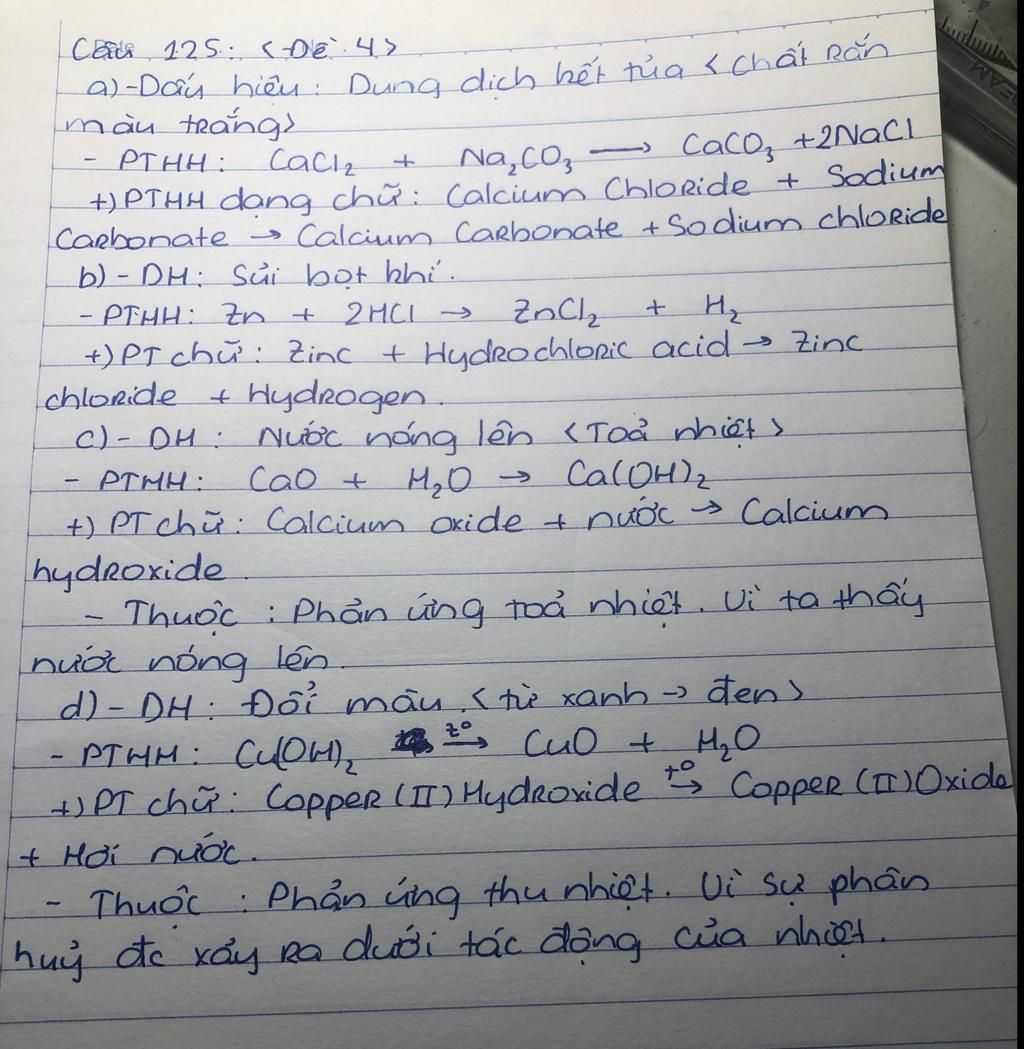 Câu 125: <Đề 4>
a) - Dấu hiệu: Dung dịch kết tủa <Chất Rắn
màu trắng>
- PTHH: CaCl₂ + Na₂CO₃ → CaCO₃ + 2NaCl
+) PTHH dạng chữ: Calcium Chloride + Sodium
Carbonate → Calcium Carbonate + Sodium chloride
b) - DH: Sủi bọt khí.
- PTHH: Zn + 2HCl → ZnCl₂ + H₂
+) PT chữ: Zinc + Hydrochloric acid → Zinc
chloride + Hydrogen.
c) - DH: Nước nóng lên <Toả nhiệt>
- PTHH: CaO + H₂O → Ca(OH)₂
+) PT chữ: Calcium oxide + nước → Calcium
hydroxide.
- Thuộc: Phản ứng toả nhiệt. Vì ta thấy
nước nóng lên.
d) - DH: Đổi màu <từ xanh → đen>
- PTHH: Cu(OH)₂ t° → CuO + H₂O
+) PT chữ: Copper (II) Hydroxide t° → Copper (II) Oxide
+ Hơi nước.
- Thuộc: Phản ứng thu nhiệt. Vì sự phân
huỷ đc xảy ra dưới tác động của nhiệt.